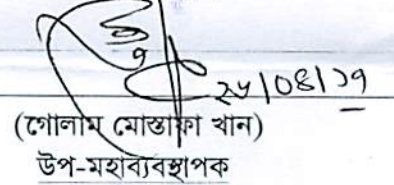 ২৮/০৪/১৭
(গোলাম মোস্তাফা খান)
উপ-মহাব্যবস্থাপক